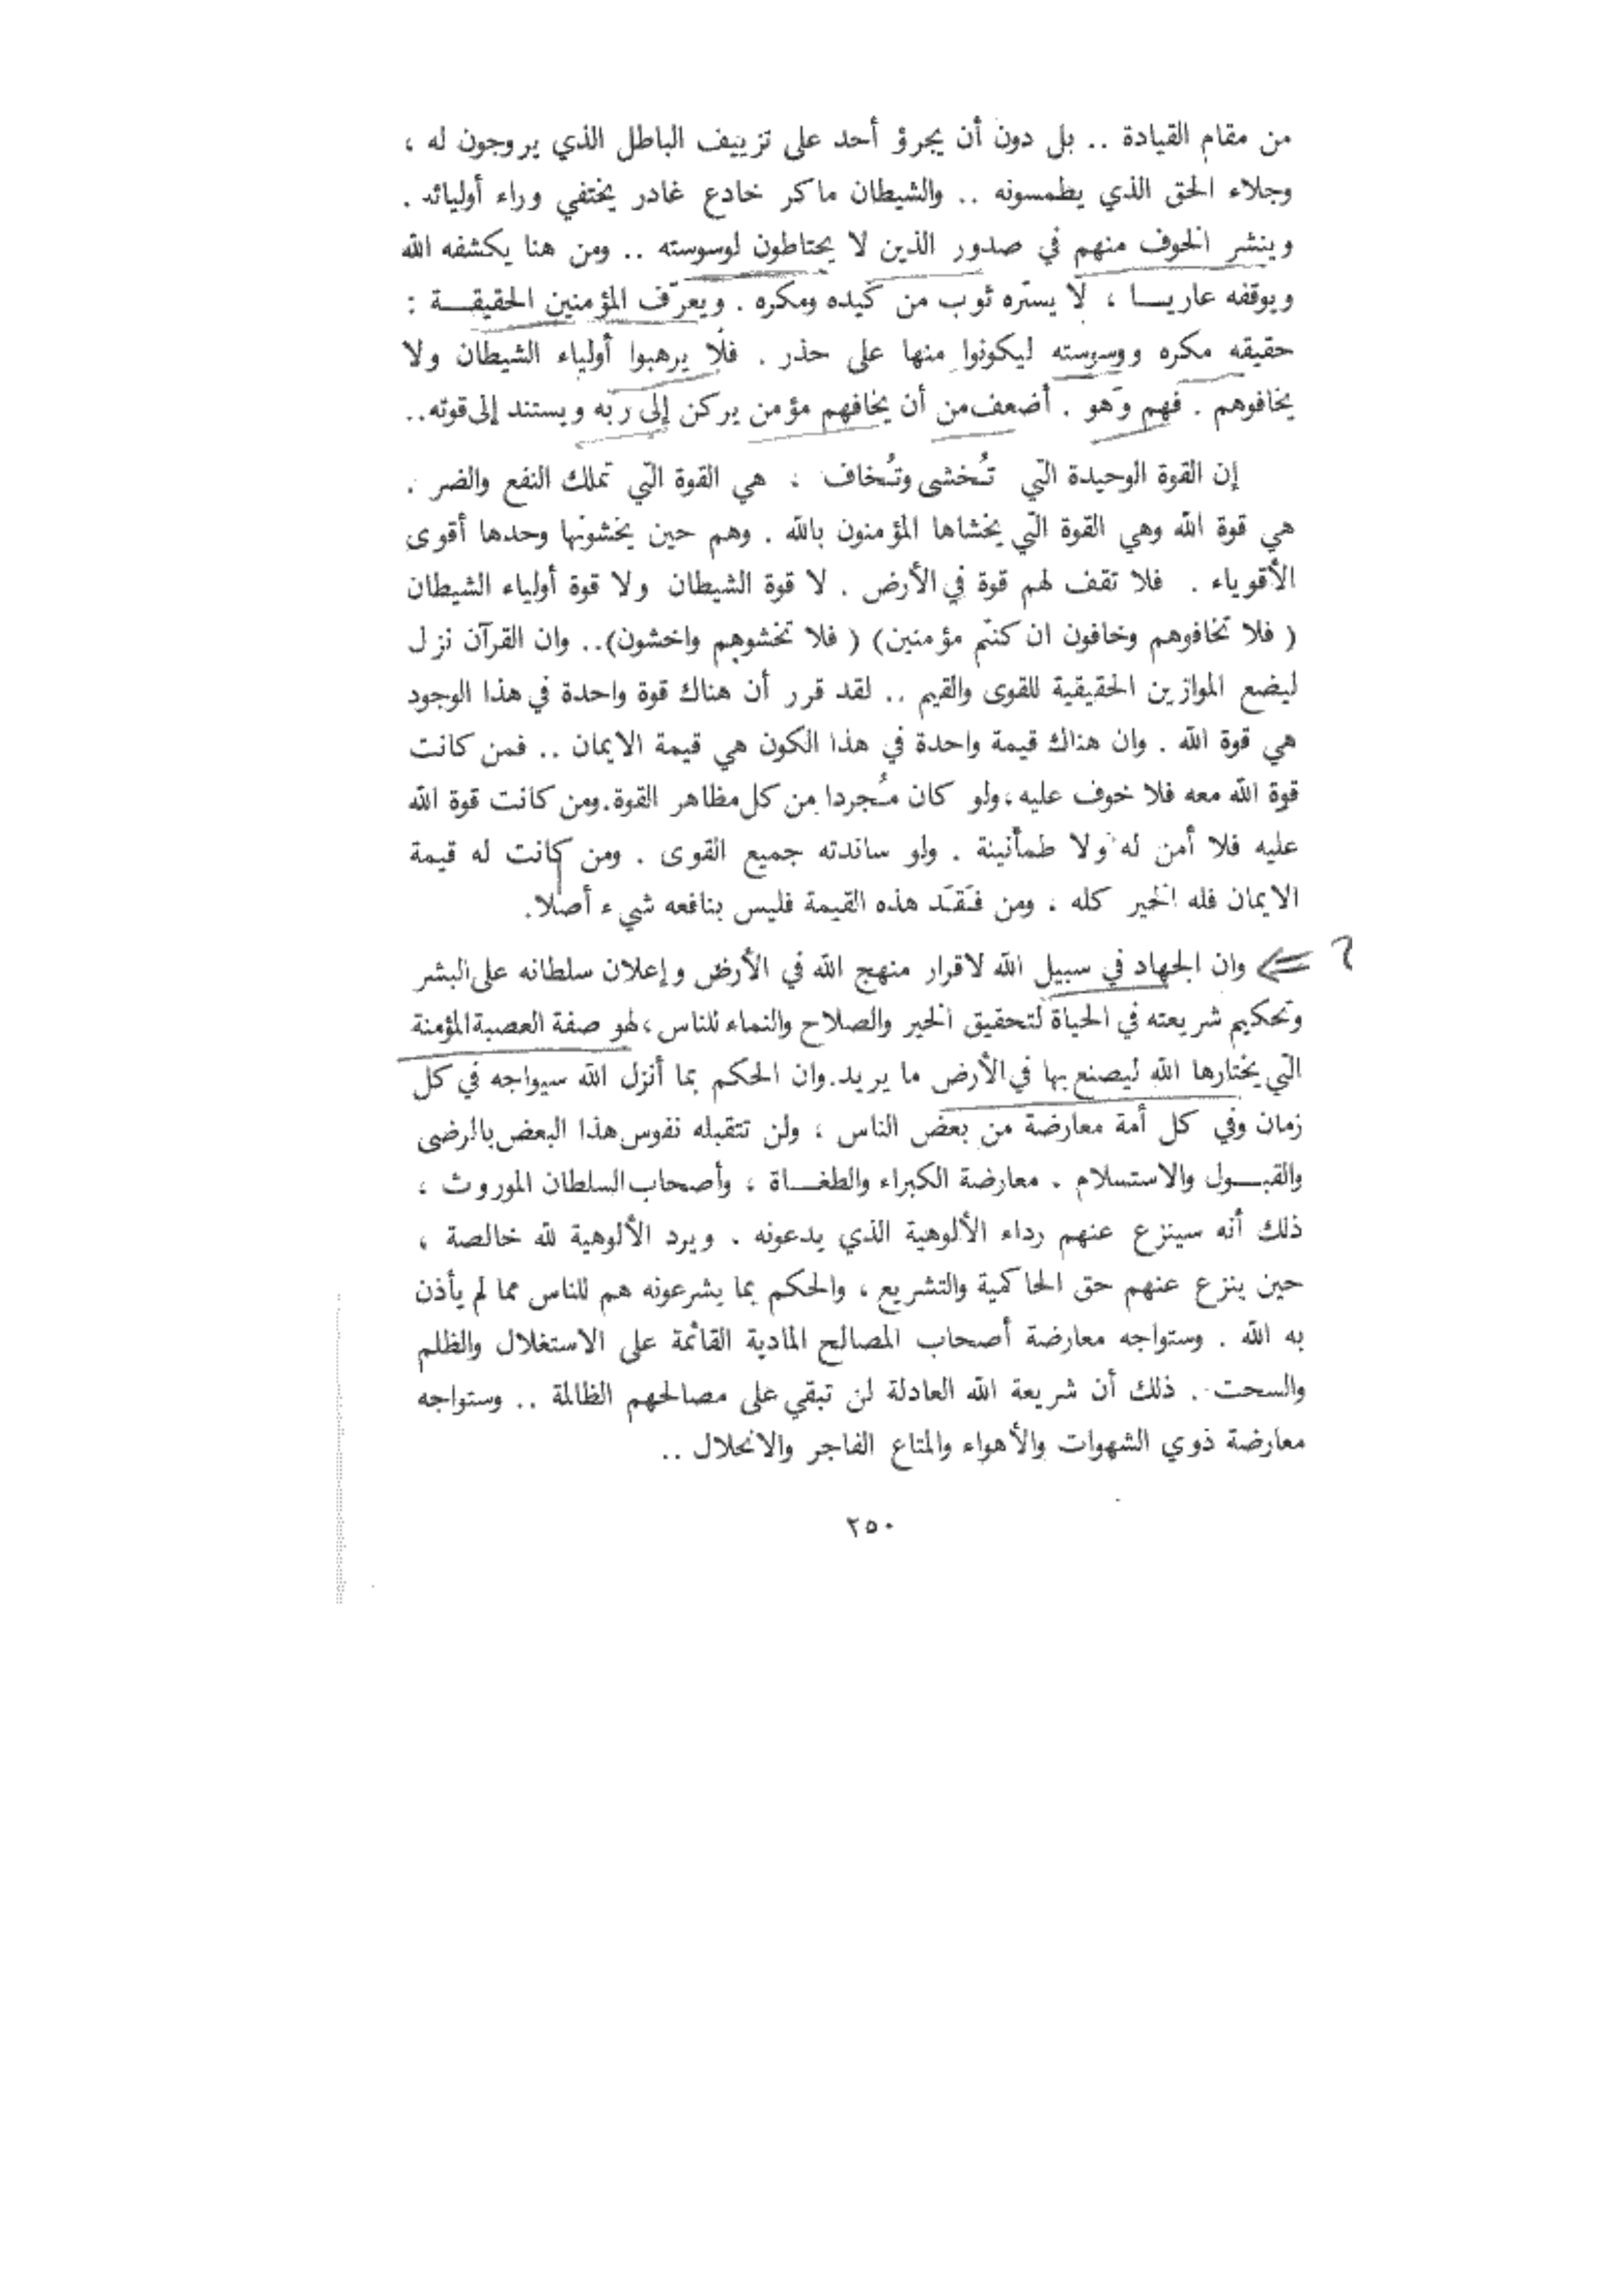 من مقام القيادة .. بل دون أن يجرؤ أحد على تزييف الباطل الذي يروجون له ،
وجلاء الحق الذي يطمسونه .. والشيطان ماكر خادع غادر يختفي وراء أوليائه .
وينشر الخوف منهم في صدور الذين لا يحتاطون لوسوسته .. ومن هنا يكشفه الله
ويوقفه عاريـــا ، لا يستره ثوب من كيده ومكره . ويعرّف المؤمنين الحقيقـــة :
حقيقه مكره ووسوسته ليكونوا منها على حذر . فلا يرهبوا أولياء الشيطان ولا
يخافوهم . فهم وهو . أضعف من أن يخافهم مؤمن يركن إلى ربه ويستند إلى قوته..
إن القوة الوحيدة التي تُخشى وتُخاف ، هي القوة التي تملك النفع والضر .
هي قوة الله وهي القوة التي يخشاها المؤمنون بالله . وهم حين يخشونها وحدها أقوى
الأقوياء . فلا تقف لهم قوة في الأرض . لا قوة الشيطان ولا قوة أولياء الشيطان
( فلا تخافوهم وخافون ان كنتم مؤمنين) ( فلا تخشوهم واخشون).. وان القرآن نزل
ليضع الموازين الحقيقية للقوى والقيم .. لقد قرر أن هناك قوة واحدة في هذا الوجود
هي قوة الله . وان هناك قيمة واحدة في هذا الكون هي قيمة الايمان .. فمن كانت
قوة الله معه فلا خوف عليه ، ولو كان مُجردا من كل مظاهر القوة. ومن كانت قوة الله
عليه فلا أمن له ولا طمأنينة . ولو ساندته جميع القوى . ومن كانت له قيمة
الايمان فله الخير كله ، ومن فَقَد هذه القيمة فليس بنافعه شيء أصلا.
٦ وان الجهاد في سبيل الله لاقرار منهج الله في الأرض وإعلان سلطانه على البشر
وتحكيم شريعته في الحياة لتحقيق الخير والصلاح والنماء للناس ، لهو صفة العصبة المؤمنة
التي يختارها الله ليصنع بها في الأرض ما يريد. وان الحكم بما أنزل الله سيواجه في كل
زمان وفي كل أمة معارضة من بعض الناس ، ولن تتقبله نفوس هذا البعض بالرضى
والقبـــول والاستسلام . معارضة الكبراء والطغـــاة ، وأصحاب السلطان الموروث ،
ذلك أنه سينزع عنهم رداء الألوهية الذي يدعونه . ويرد الألوهية لله خالصة ،
حين ينزع عنهم حق الحاكمية والتشريع ، والحكم بما يشرعونه هم للناس مما لم يأذن
به الله . وستواجه معارضة أصحاب المصالح المادية القائمة على الاستغلال والظلم
والسحت . ذلك أن شريعة الله العادلة لن تبقي على مصالحهم الظالمة .. وستواجه
معارضة ذوي الشهوات والأهواء والمتاع الفاجر والانحلال ..
٢٥٠